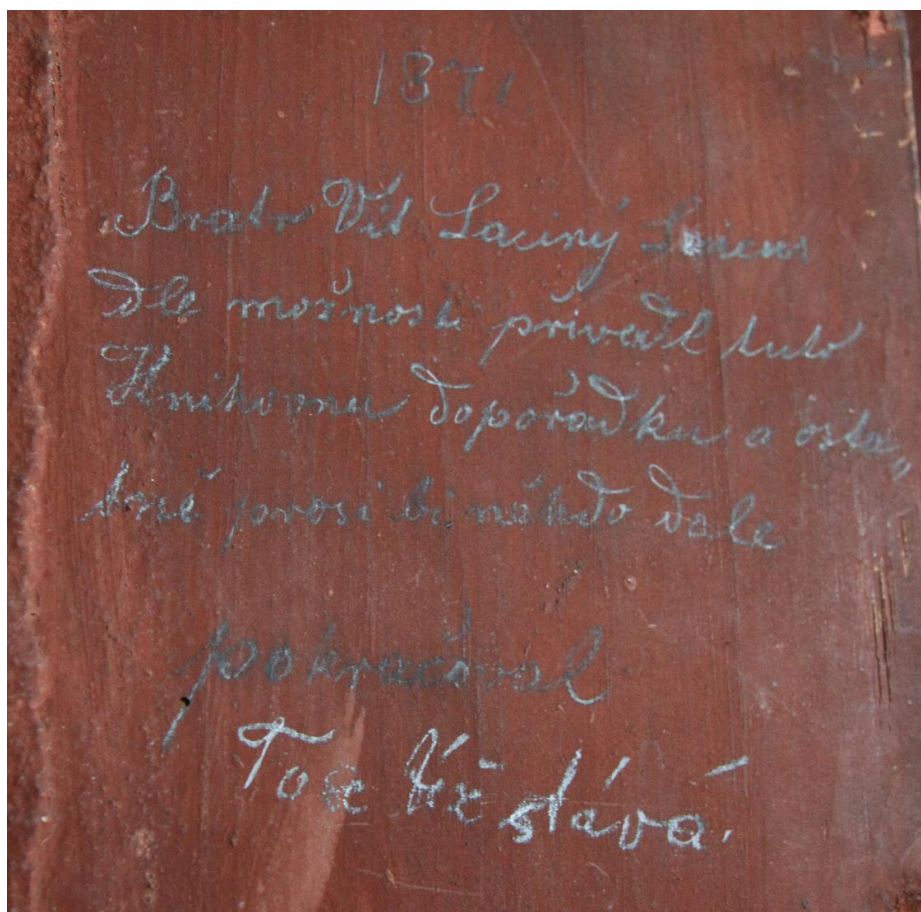 1871.
Bratr Vít Laciný
dle možnosti přivedl tuto
Knihovnu dopořadku a osta„
tně prosi bi někdo dale
pokračoval
Tose Již stává.